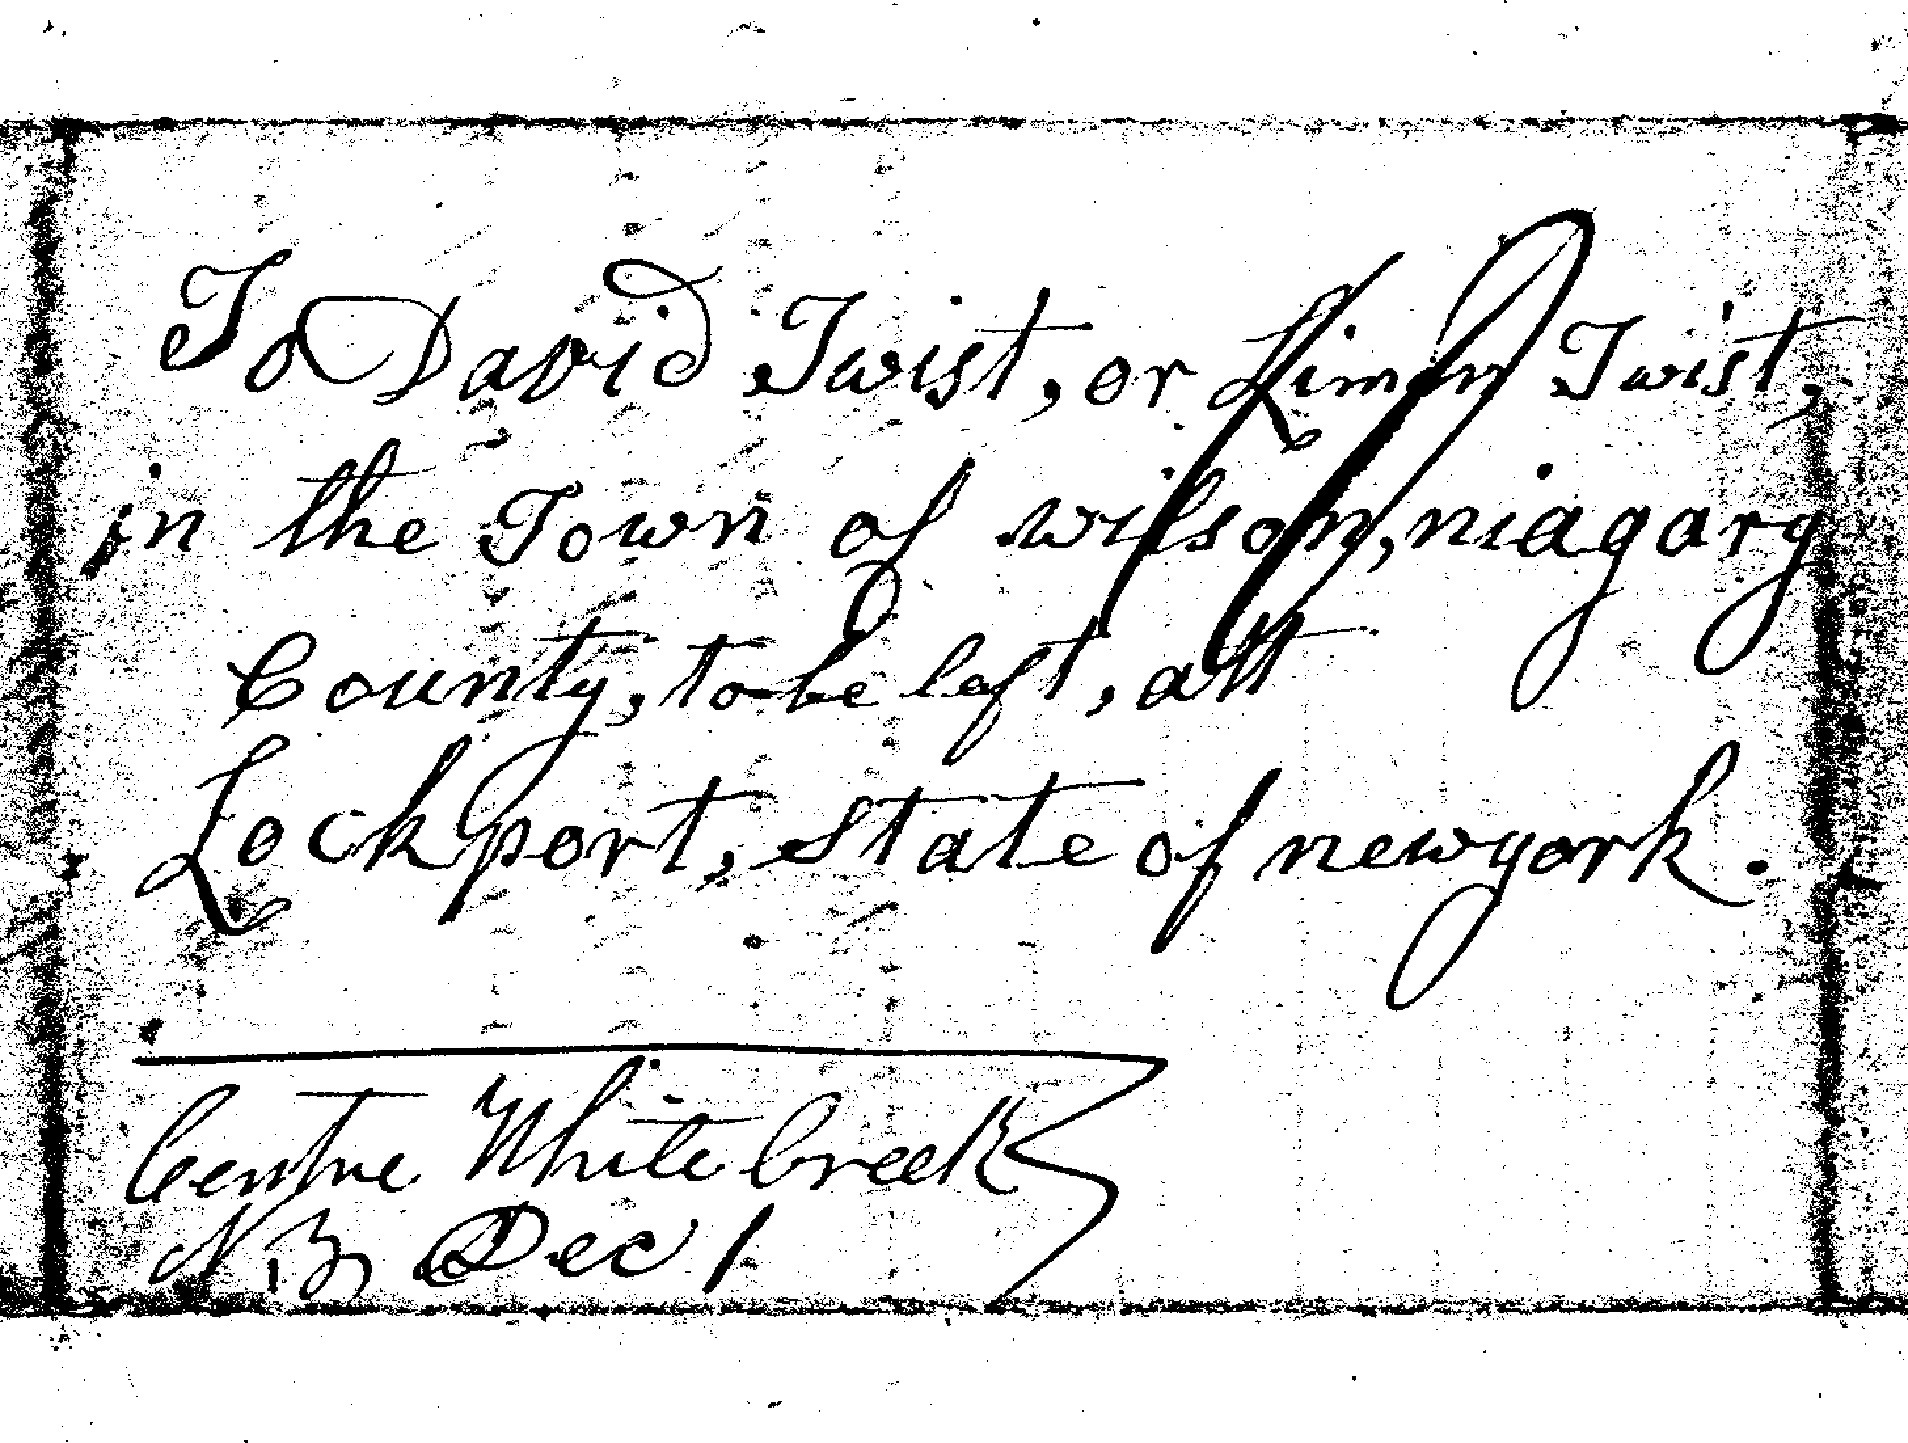 To David Twist, or Limon Twist,
in the Town of wilson, niagary
County, to be left, att
Lockport, State of newyork.
Centre White Creek
Dec 1